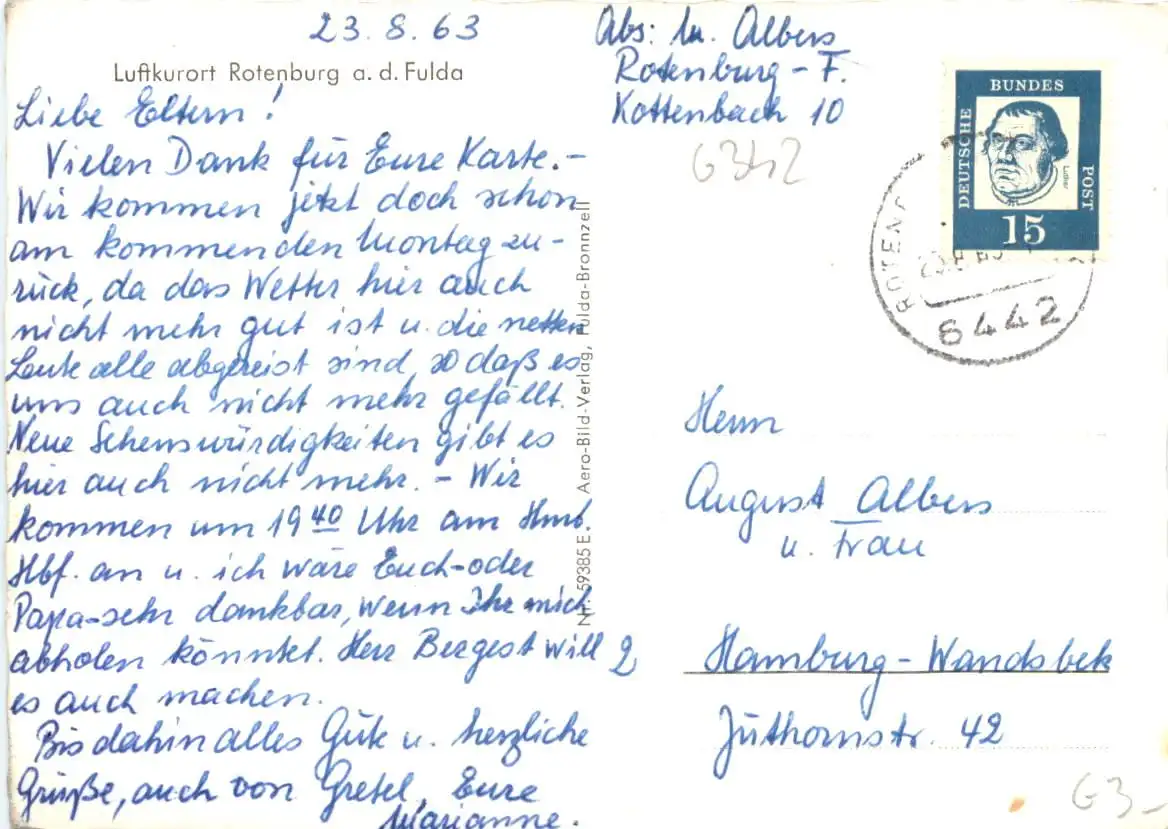 23.8.63
Luftkurort Rotenburg a. d. Fulda
Liebe Eltern!
Vielen Dank für Eure Karte.-
Wir kommen jetzt doch schon
am kommenden Montag zu-
rück, da das Wetter hier auch
nicht mehr gut ist u. die netten
Leute alle abgereist sind, so daß es
uns auch nicht mehr gefällt.
Neue Sehenswürdigkeiten gibt es
hier auch nicht mehr. - Wir
kommen um 19 40 Uhr am Hmb.
Hbf. an u. ich wäre Euch-oder
Papa-sehr dankbar, wenn Ihr mich
abholen könntet. Herr Bergest will
es auch machen.
Bis dahin alles Gute u. herzliche
Grüße, auch von Gretel, Eure
Marianne.
Nr. 59385 E Aero-Bild-Verlag, Fulda-Bronnzell
Abs: M. Albers
Rotenburg-F.
Kottenbach 10
DEUTSCHE
BUNDES
POST
Luther
15
ROTENB
23.8.63
6442
Herrn
August Albers
u. Frau
2 Hamburg-Wandsbek
Jüthornstr. 42
G3-